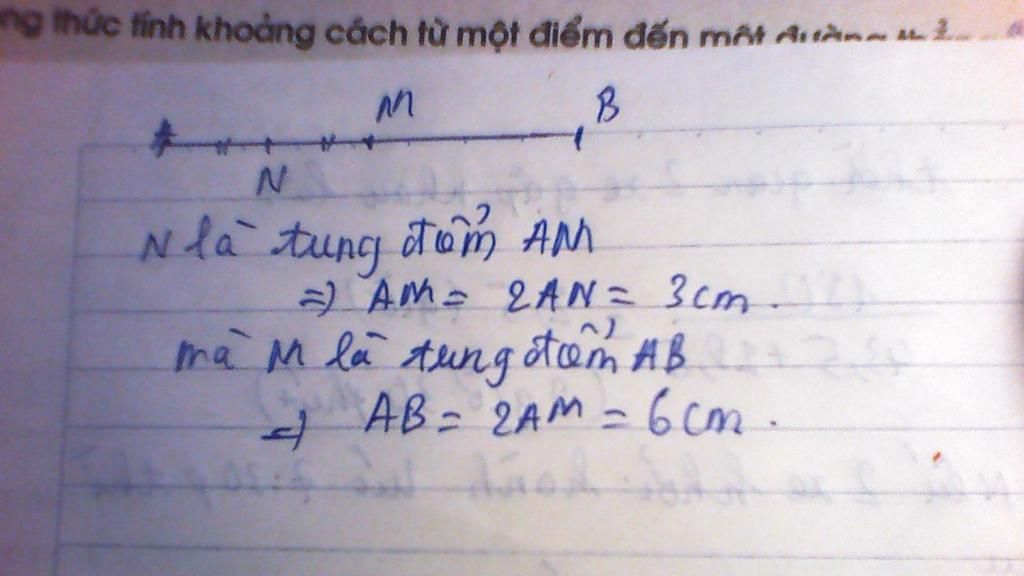 ng thức tính khoảng cách từ một điểm đến một đường
M B
A
N
N là tung điểm AM
=> AM = 2AN = 3cm.
mà M là tung điểm AB
=> AB = 2AM = 6cm.